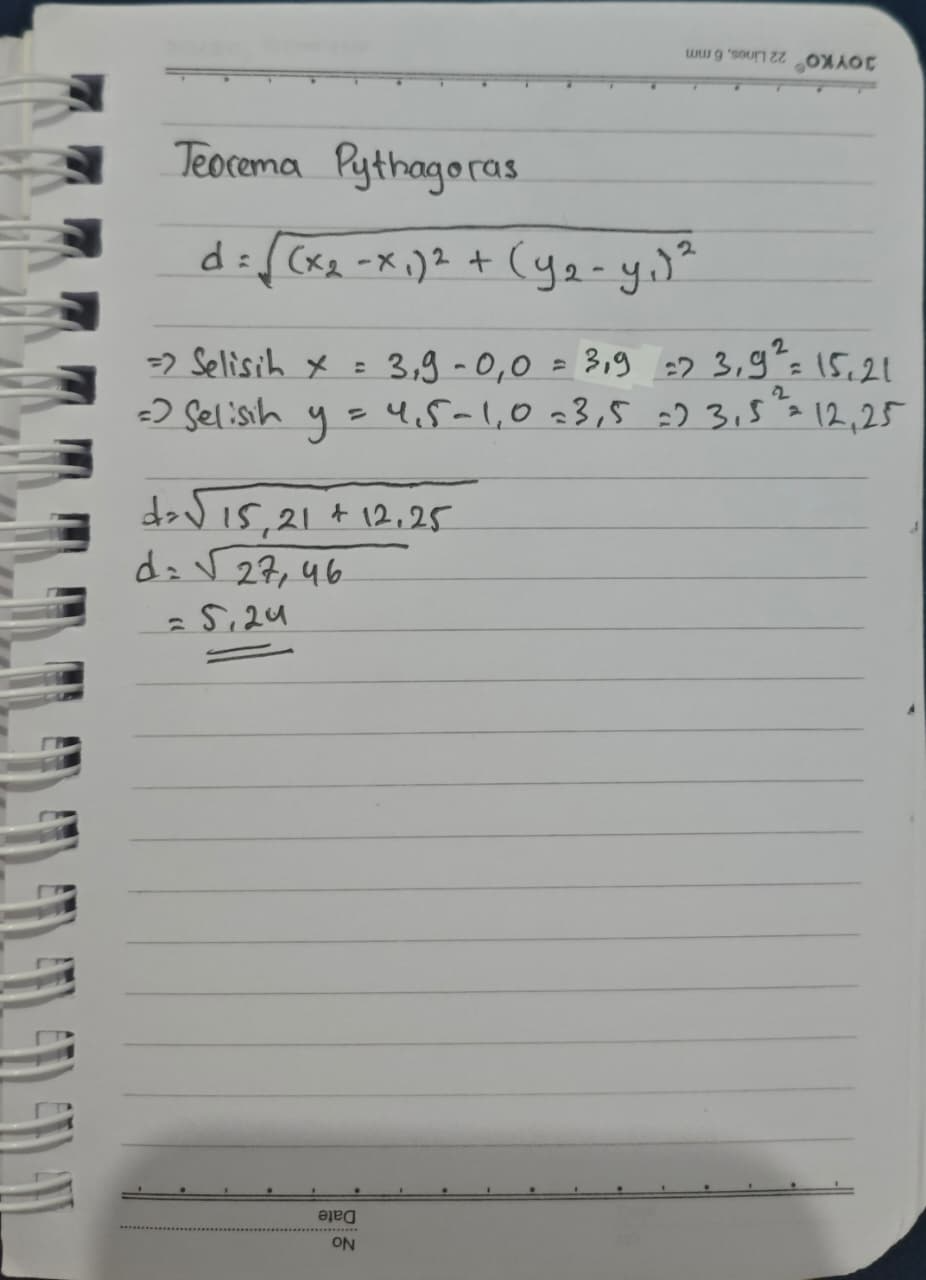 JOYKO® 22 Lines, 6 mm
Teorema Pythagoras
d = √(x₂ - x₁)² + (y₂ - y₁)²
=> Selisih x = 3,9 - 0,0 = 3,9 => 3,9² = 15,21
=> Selisih y = 4,5 - 1,0 = 3,5 => 3,5² = 12,25
d = √15,21 + 12,25
d = √27,46
= 5,24
Date
No